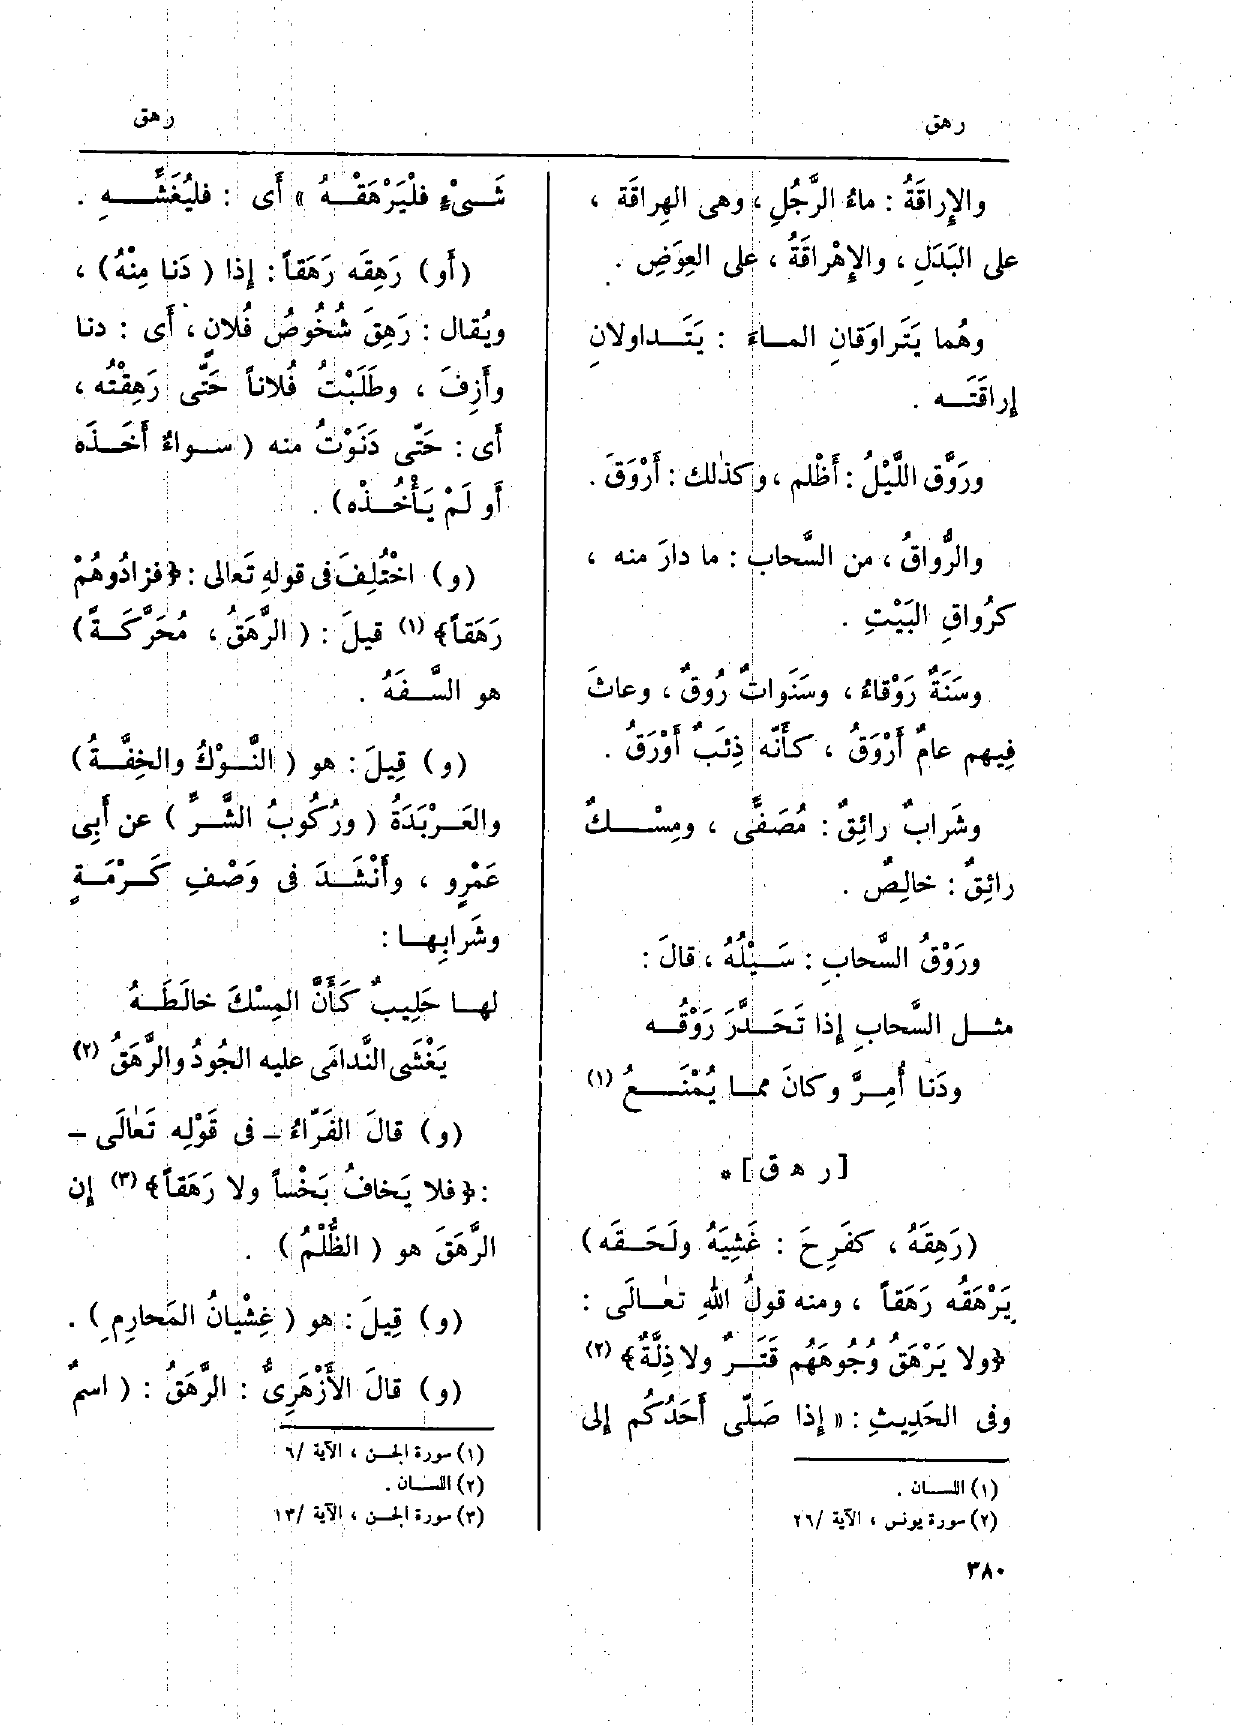 رهق
رهق
والإِراقَةُ : ماءُ الرَّجُلِ ، وهى الهِراقَة ،
على البَدَلِ ، والإِهْراقَةُ ، على العِوَضِ .
وهُما يَتَراوَقانِ المـاءَ : يَتَـداولانِ
إِراقَتَـه .
ورَوَّق اللَّيْلُ : أَظْلم ، وكذٰلك : أَرْوَقَ .
والرُّواقُ ، من السَّحاب : ما دارَ منه ،
كرُواقِ البَيْتِ .
وسَنَةٌ رَوْقاءُ ، وسَنَواتٌ رُوقٌ ، وعاثَ
فِيهم عامٌ أَرْوَقُ ، كأَنّه ذِئبٌ أَوْرَقُ .
وشَرابٌ رائِقٌ : مُصَفًّى ، ومِسْـكٌ
رائِقٌ : خالِصٌ .
ورَوْقُ السَّحابِ : سَيْلُهُ ، قالَ :
مثـل السَّحابِ إِذا تَحَـدَّرَ رَوْقُـه
ودَنا أُمِـرَّ وكانَ ممـا يُمْنَـعُ (١)
[ ر هـ ق ] *
(رَهِقَهُ ، كفَرِحَ : غَشِيَهُ ولَحَـقَه)
يَرْهَقُه رَهَقاً ، ومنه قولُ اللهِ تعـٰالَى :
﴿ولا يَرْهَقُ وُجُوهَهُم قَتَـرٌ ولا ذِلَّةٌ﴾ (٢)
وفى الحَدِيثِ : « إِذا صَلَّى أَحَدُكُم إِلى
(١) اللسـان .
(٢) سورة يونس ، الآية /٢٦
شَـىْءٍ فلْيَرْهَقْـهُ » أَى : فليُغَشِّـهِ .
(أَو) رَهِقَه رَهَقاً : إِذا ( دَنا مِنْهُ ) ،
ويُقال : رَهِقَ شُخُوصُ فُلانٍ ، أَى : دنا
وأَزِفَ ، وطَلَبْتُ فُلاناً حَتَّى رَهِقْتُه ،
أَى : حَتّى دَنَوْتُ منه ( سـواءٌ أَخَـذَه
أَو لَمْ يَأْخُـذْه ) .
(و) اخْتُلِفَ فى قولهِ تَعالى : ﴿فزادُوهُمْ
رَهَقاً﴾ (١) قيلَ : ( الرَّهَقُ ، مُحَرَّكَـةً )
هو السَّـفَهُ .
(و) قِيلَ : هو ( النَّـوْكُ والخِفَّـةُ )
والعَـرْبَدَةُ ( ورُكُوبُ الشَّـرِّ ) عن أَبِى
عَمْرٍو ، وأَنْشَـدَ فى وَصْفِ كَـرْمَـةٍ
وشَرابِهـا :
لهـا حَلِيبٌ كَأَنَّ المِسْكَ خالَطَـهُ
يَغْشَى النَّدامَى عليه الجُودُ والرَّهَقُ (٢)
(و) قالَ الفَرّاءُ – فى قَوْلِه تَعٰالَى –
: ﴿فلا يَخافُ بَخْساً ولا رَهَقاً﴾ (٣) إِن
الرَّهَقَ هو ( الظُّلْمُ ) .
(و) قِيلَ : هو ( غِشْيانُ المَحارِمِ ) .
(و) قالَ الأَزْهَرِىُّ : الرَّهَقُ : ( اسمٌ
(١) سورة الجـن ، الآية /٦
(٢) اللسـان .
(٣) سورة الجـن ، الآية /١٣
٣٨٠